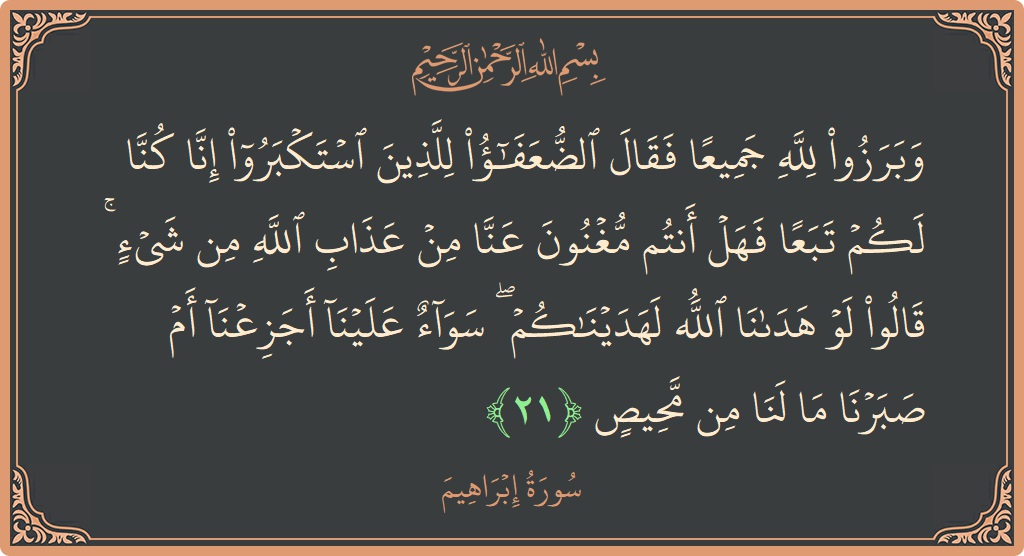 بِسْمِ اللَّهِ الرَّحْمَٰنِ الرَّحِيمِ
وَبَرَزُوا۟ لِلَّهِ جَمِيعًا فَقَالَ ٱلضُّعَفَـٰٓؤُا۟ لِلَّذِينَ ٱسْتَكْبَرُوٓا۟ إِنَّا كُنَّا
لَكُمْ تَبَعًا فَهَلْ أَنتُم مُّغْنُونَ عَنَّا مِنْ عَذَابِ ٱللَّهِ مِن شَىْءٍ ۚ
قَالُوا۟ لَوْ هَدَىٰنَا ٱللَّهُ لَهَدَيْنَـٰكُمْ ۖ سَوَآءٌ عَلَيْنَآ أَجَزِعْنَآ أَمْ
صَبَرْنَا مَا لَنَا مِن مَّحِيصٍ ﴿٢١﴾
سُورَةُ إِبْرَاهِيمَ